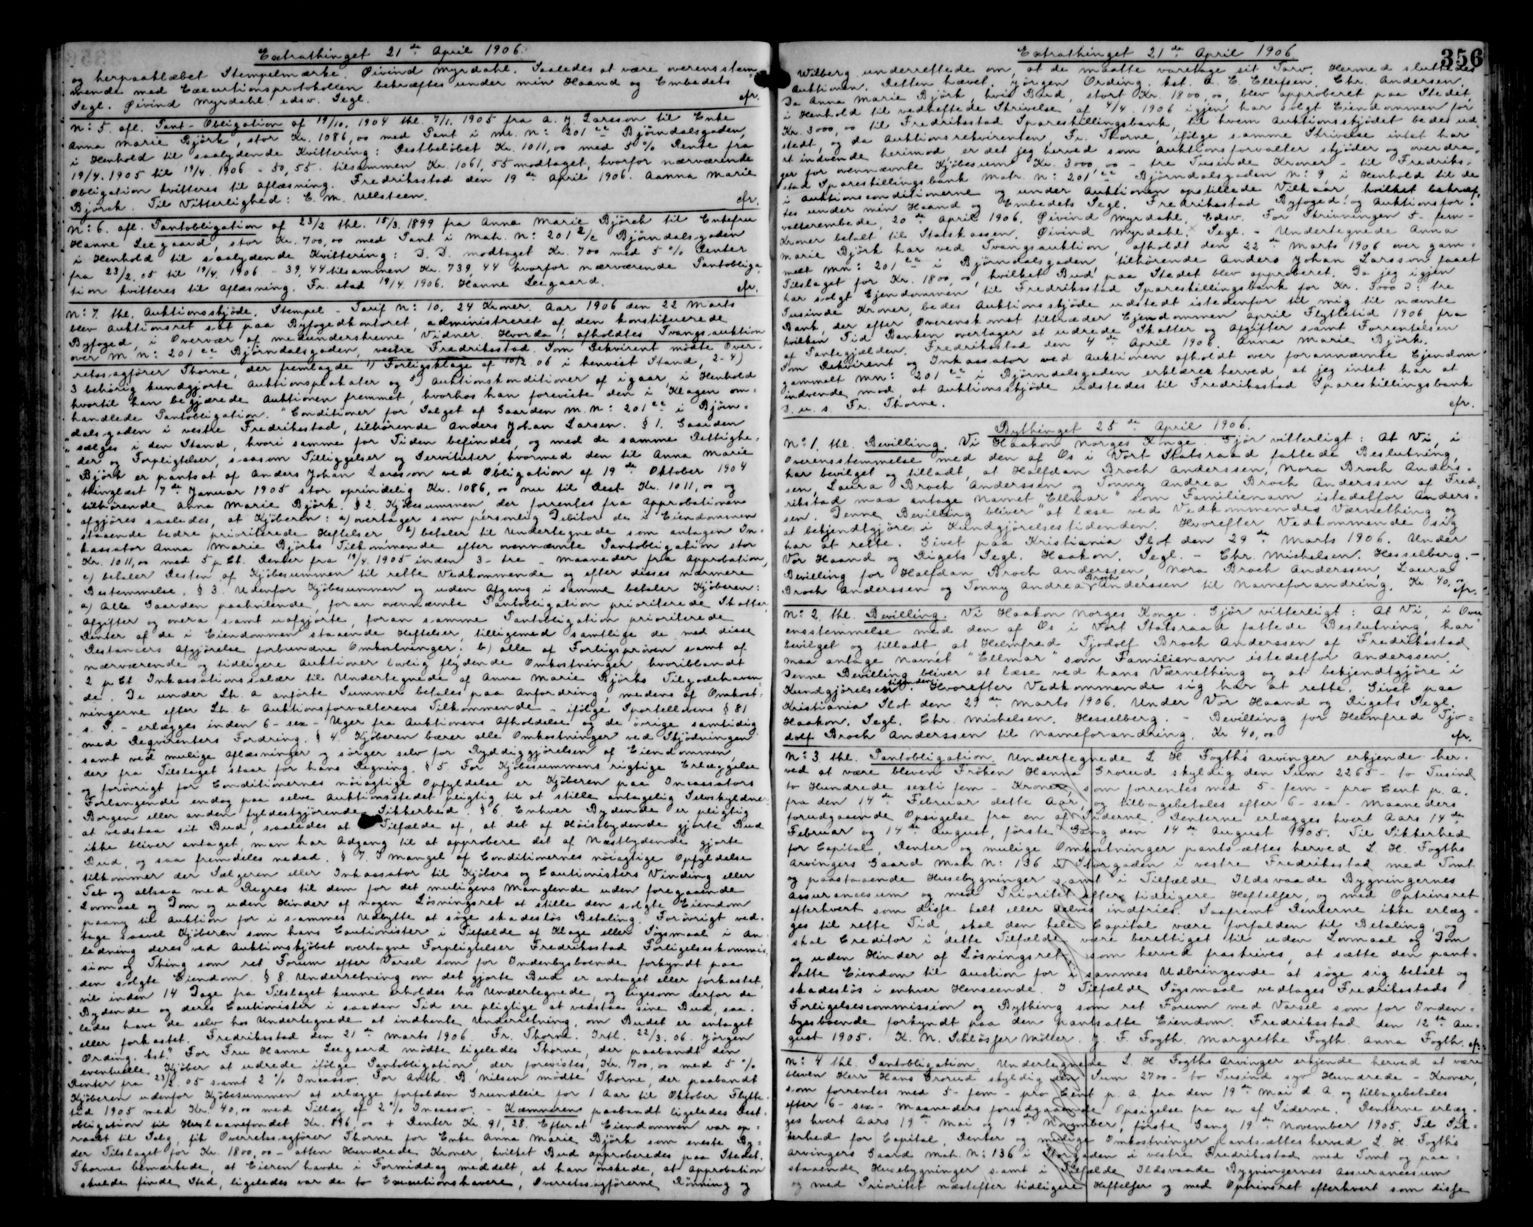 Extrathinget 21de April 1906.
og herpaaklæbet Stempelmærke. Øivind Myrdahl. Saaledes at være overensstem-
mende med Executionsprotokollen bekræftes under min Haand og Embedets
Segl. Øivind Myrdahl, edsv. Segl. cfr.
N: 5. afl. Pant-Obligation af 19/10. 1904 thl. 7/1. 1905 fra A. J. Larsson til Enke
Anna Marie Björk, stor Kr. 1086,00 med Pant i mt. N: 201 Björndalsgaden,
i Henhold til saalydende Kvittering: Restbeløbet Kr. 1011,00 med 5% Rente fra
19/4. 1905 til 19/4. 1906 - 50,55 - tilsammen Kr. 1061,55 modtaget, hvorfor nærværende
Obligation kvitteres til Aflæsning. Fredriksstad den 19de April 1906. Aanna Marie
Björck. Til Vitterlighed: E. M. Ulsteen. cfr.
N: 6. afl. Pantobligation af 23/2 thl. 15/3. 1899 fra Anna Marie Björck til Enkefru
Hanne Seegaard, stor Kr. 700,00 med Pant i Matr. N: 201 Björndalsgaden
i Henhold til saalydende Kvittering: I. D. modtaget Kr. 700 med 5% Renter
fra 23/2. 05 til 19/4. 1906 - 39,44 tilsammen Kr. 739,44 hvorfor nærværende Pantobliga-
tion kvitteres til Aflæsning. Fr.stad 19/4. 1906. Hanne Seegaard. cfr.
N: 7. thl. Auktionsskjöde. Stempel - Tarif N: 10. 24 Kroner. Aar 1906 den 22 Marts
blev Auktionsret sat paa Byfogedkontoret, administreret af den konstituerede
Byfoged, i Overvær af medunderskrevne Vidner. Hvorda: afholdtes Tvangsauktion
over M. N: 201 Björndalsgaden, vestre Fredriksstad. Som Rekvirent mödte Over-
retssagförer Thorne, der fremlagde 1) Forligsklage af 10/2 06 i henvist Stand, 2-4)
3 behörig kundgjorte Auktionsplakater og 5) Auktionskonditioner af igaar, i Henhold
hvortil han begjærede Auktionen fremmet, hvorhos han foreviste den i Klagen om-
handlede Pantobligation. "Conditioner for Salget af Gaarden M. N: 201 i Björn-
dalsgaden i vestre Fredriksstad, tilhörende Anders Johan Larsen. § 1. Gaarden
sælges i den Stand, hvori samme for Tiden befindes, og med de samme Rettighe-
der og Forpligtelser, saasom Tilliggelser og Servituter, hvormed den til Anna Marie
Björk er pantsat af Anders Johan Larsson ved Obligation af 19de Oktober 1904
thinglæst 7de Januar 1905 stor oprindelig Kr. 1086,00 nu til Rest Kr. 1011,00 og
tilhörende Anna Marie Björk. § 2. Kjöbesummen, der forrentes fra Approbationen
afgjöres saaledes, at Kjöberen: a) overtager som personlig Debitor de i Eiendommen
staaende bedre prioriterede Heftelser, b) betaler til Undertegnede som antagen In-
kassator Anna Marie Björks Tilkommende efter ovennævnte Pantobligation stor
Kr. 1011,00 med 5 p.Ct. Renter fra 19/4. 1905 inden 3 - tre - Maaneder fra Approbation,
c) betaler Resten af Kjöbesummen til rette Vedkommende og efter disses nærmere
Bestemmelse. § 3. Udenfor Kjöbesummen og uden Afgang i samme betaler Kjöberen:
a) Alle Gaarden paahvilende, foran ovennævnte Pantobligation prioriterede Skatter,
Afgifter og onera samt uafgjorte, foran samme Pantobligation prioriterede
Renter af de i Eiendommen staaende Heftelser, tilligemed samtlige de med disse
Restancers Afgjörelse forbundne Omkostninger. b) alle af Forligsprøven samt af
nærværende og tidligere Auktioner lovlig flydende Omkostninger, hvoriblandt
2 p.Ct. Inkassationssalær til Undertegnede af Anna Marie Björks Tilgodehaven-
de. De under Lit. a anförte Summer betales paa Anfordring, medens af Omkost-
ningerne efter Lit. b Auktionsforvalterens Tilkommende - ifölge Sportellovens § 81
s. P. - erlægges inden 6 - sex - Uger fra Auktionens Afholdelse og de örige samtidig
med Requirentens Fordring. § 4. Kjöberen bærer alle Omkostninger ved Skjödningen
samt ved mulige Aflæsninger og sörger selv for Ryddiggjörelsen af Eiendommen
der fra Tilslaget staar for hans Regning. § 5. For Kjöbesummens rigtige Erlæggelse
og forövrigt for Conditionernes nöiagtige Opfyldelse er Kjöberen paa Incassators
Forlangende endog paa selve Auktionsstedet pligtig til at stille antagelig Selvskyldner-
Borgen eller anden fyldestgjörende Sikkerhed. § 6. Enhver Bydende er pligtig
at vedstaa sit Bud, saaledes at i Tilfælde af, at det af Höistbydende gjorte Bud
ikke bliver antaget, man har Adgang til at approbere det af Næstbydende gjorte
Bud, og saa fremdeles nedad. § 7. I Mangel af Conditionernes nöiagtige Opfyldelse
tilkommer der Sælgeren eller Inkassator til Kjöbers og Cautionisters Vinding eller
Tab og altsaa med Regres til dem for det muligens Manglende uden foregaaende
Lovmaal og Dom og uden Hinder af nogen Lösningsret at stille den solgte Eiendom
paany til Auktion for i sammes Udbytte at söge skadeslös Betaling. Forövrigt ved-
tage saavel Kjöberen som hans Cautionister i Tilfælde af Klage eller Sögsmaal i An-
ledning deres ved Auktionskjöbet overtagne Forpligtelser Fredriksstad Forligelseskommis-
sion og Thing som ret Forum efter Varsel som for Indenbysboende forkyndt paa
den solgte Eiendom. § 8. Underretning om det gjorte Bud er antaget eller forkastet,
vil inden 14 Dage fra Tilslaget kunne erholdes hos Undertegnede, ligesom derfor de
Bydende og deres Cautionister i saadan Tid ere pligtige at vedstaa sine Bud, saa-
ledes have de selv hos Undertegnede at indhente Underretning, om Budet er antaget
eller forkastet. Fredriksstad den 21de Marts 1906. Fr. Thorne. Irtl. 22/3. 06. Jörgen
Ording. kst." For Fru Hanne Seegaard mödte ligeledes Thorne, der paabandt den
eventuelle Kjöber at udrede ifölge Pantobligation, der forevistes, Kr. 700,00 med 5%
Renter fra 23/2. 05 samt 2% Incasso. For Anth. B. Nilsen mödte Thorne, der paabandt
Kjöberen udenfor Kjöbesummen at erlægge forfalden Grundleie for 1 Aar til Oktober Flytte-
tid 1905 med Kr. 40,00 med Tillæg af 2% Incasso. - Kæmneren paabandt ligeledes Rest-
obligation til Huslaanefondet Kr. 896,00 + Renter Kr. 91,28. Efterat Eiendommen var op-
raabt til Salg, fik Overretssagförer Thorne for Enke Anna Marie Björk som eneste By-
der Tilslaget for Kr. 1800,00 - atten Hundrede Kroner, hvilket Bud approberedes paa Stedet.
Thornes bemærkede, at Eieren havde i Formiddag meddelt, at han önskede, at Approbation
skulde finde Sted, ligeledes var de to Executionshavere, Overretssagförerne Rönning og
Extrathinget 21de April 1906
356
Wilberg underrettede om, at de maatte varetage sit Tarv. Hermed sluttedes
Auktionen. Retten hævet. Jörgen Ording kst. A. E. Ellefsen. Chr. Andersen.
Da Anna Marie Björk hvis Bud, stort Kr. 1800,00 blev approberet paa Stedet
i Henhold til vedheftede Skrivelse af 4/4. 1906 igjen har solgt Eiendommen for
Kr. 3000,00 til Fredriksstad Sparesskillingsbank, til hvem Auktionsskjödet bedes ud-
stedt, og da Auktionsrekvirenten, Fr. Thorne, ifölge samme Skrivelse intet har
at indvende herimod er det jeg herved som Auktionsforvalter skjöder og overdra-
ger for ovennævnte Kjöbesume Kr. 3000,00 - tre Tusinde Kroner - til Fredriks-
stad Spareskillingsbank Matr. N: 201 Björndalsgaden N: 9, i Henhold til de
i Auktionsconditionerne og under Auktionen opstillede Vilkaar, hvilket bekræf-
tes under min Haand og Embedets Segl. Fredriksstad Byfoged- og Auktionsfor-
valterembede, 20de April 1906. Øivind Myrdahl. Edsv. For Skrivningen 5 - fem -
Kroner betalt til Statskassen. Øivind Myrdahl. Segl. - Undertegnede Anna
Marie Björk har ved Tvangsauktion, afholdt den 22de Marts 1906 over gam-
melt Mn: 201 i Björndalsgaden tilhörende Anders Johan Larsson faaet
Tilslaget for Kr. 1800,00, hvilket Bud paa Stedet blev approberet. Da jeg igjen
har solgt Ejendommen til Fredriksstad Spareskillingsbank for Kr. 3000 ɔ: tre
Tusinde Kroner, bedes Auktionsskjöde udstedt istedenfor til mig til nævnte
Bank, der efter Overenskomst tiltræder Ejendommen April Flyttetid 1906 fra
hvilken Tid Banken overtager at udrede Skatter og Afgifter samt Forrentelsen
af Pantegjælden. Fredriksstad den 4de April 1906. Anna Marie Björk.
Som Rekvirent og Inkassator ved Auktionen afholdt over forannævnte Ejendom
gammelt Mn: 201 i Björndalsgaden erklæres herved, at jeg intet har at
indvende mod, at Auktionsskjöde udstedes til Fredriksstad Spareskillingsbank
D. u. s. Fr. Thorne. cfr.
Bythinget 25de April 1906.
N: 1. thl. Bevilling. Vi Haakon Norges Konge. Gjör vitterligt: At Vi, i
Overensstemmelse med den af Os i Vort Statsraad fattede Beslutning,
har bevilget og tilladt at Halfdan Broch Anderssen, Nora Broch Anders-
sen, Laura Broch Anderssen og Tonny Andrea Broch Anderssen af Fred-
rikstad maa antage Navnet "Ellmar" som Familienavn istedetfor Anders-
sen. Denne Bevilling bliver at læse ved Vedkommendes Værnething og
at bekjendtgjöre i Kundgjörelsestidenden. Hvorefter Vedkommende sig
har at rette. Givet paa Kristiania Slot den 29de Marts 1906. Under
Vor Haand og Rigets Segl. Haakon. Segl. - Chr. Michelsen. Hesselberg. -
Bevilling for Halfdan Broch Anderssen, Nora Broch Anderssen, Laura
Broch Anderssen og Tonny Andrea Broch Anderssen til Navneforandring. Kr. 40,00 cfr.
N: 2. thl. Bevilling. Vi Haakon Norges Konge. Gjör vitterligt: At Vi, i Over-
ensstemmelse med den af Os i Vort Statsraad fattede Beslutning, har
bevilget og tilladt at Helmfred Tjodolf Broch Anderssen af Fredrikstad
maa antage Navnet "Ellmar" som Familienavn istedetfor Anderssen.
Denne Bevilling bliver at læse ved hans Værnething og at bekjendtgjöre i
Kundgjörelsestidenden. Hvorefter Vedkommende sig har at rette. Givet paa
Kristiania Slot den 29de Marts 1906. Under Vor Haand og Rigets Segl.
Haakon. Segl. Chr. Michelsen. Hesselberg. - Bevilling for Helmfred Tjo-
dolf Broch Anderssen til Navneforandring. Kr. 40,00 cfr.
N: 3. thl. Pantobligation. Undertegnede L. H. Fogths Arvinger erkjende her-
ved at være bleven Fröken Hanna Grorud skyldig den Sum 2265 - to Tusind
to Hundrede sexti fem - Kroner, som forrentes med 5 - fem - pro Cent p. A.
fra den 14de Februar dette Aar, og tilbagebetales efter 6 - sex - Maaneders
forudgaaende Opsigelse fra en af Siderne. Renterne erlægges hvert Aars 14de
Februar og 14de August, förste Gang den 14de August 1905. Til Sikkerhed
for Capital, Renter og mulige Omkostninger pantsættes herved L. H. Fogths
Arvingers Gaard Matr. N: 136 i Storgaden i vestre Fredriksstad med Tomt
og paastaaende Husebygninger samt i Tilfælde Ildsvaade Bygningernes
Assurancesum og med Prioritet efter tidligere Heftelser, og med Optrinsret
efterhvert som disse helt eller delvis indfries. Saafremt Renterne ikke erlæg-
ges til rette Tid, skal den hele Capital være forfalden til Betaling og
skal Creditor i dette Tilfælde være berettiget til uden Lovmaal og Dom
og uden Hinder af Lösningsret, som herved fraskrives, at sætte den pant-
satte Eiendom til Auction for i sammes Udbringende at söge sig betalt og
skadeslös i enhver Henseende. I Tilfælde Sögsmaal vedtages Fredriksstads
Forligelsescommission og Bything som ret Forum med Varsel som for Inden-
bysboende forkyndt paa den pantsatte Eiendom. Fredriksstad den 12te Au-
gust 1905. K. N. Schlösser Möller. J. F. Fogth. Margrethe Fogth. Anna Fogth. cfr.
N: 4 thl. Pantobligation. Undertegnede L. H. Fogths Arvinger erkjende herved at være
bleven Herr Hans Grorud skyldig den Sum 2700 - to Tusind syv Hundrede - Kroner,
som forrentes med 5 - fem - pro Cent p. A. fra den 19de Mai d. A. og tilbagebetales
efter 6 - sex - Maaneders forudgaaende Opsigelse fra en af Siderne. Renterne erlæg-
ges hvert Aars 19de Mai og 19de November, förste Gang 19de November 1905. Til Sik-
kerhed for Capital, Renter og mulige Omkostninger pantsættes herved L. H. Fogths
Arvingers Gaard Matr. N: 136 i Storgaden i vestre Fredriksstad med Tomt og paa-
staaende Husebygninger samt i Tilfælde Ildsvaade Bygningernes Assurancesum
og med Prioritet næstefter tidligere Heftelser og med Optrinsret efterhvert som disse